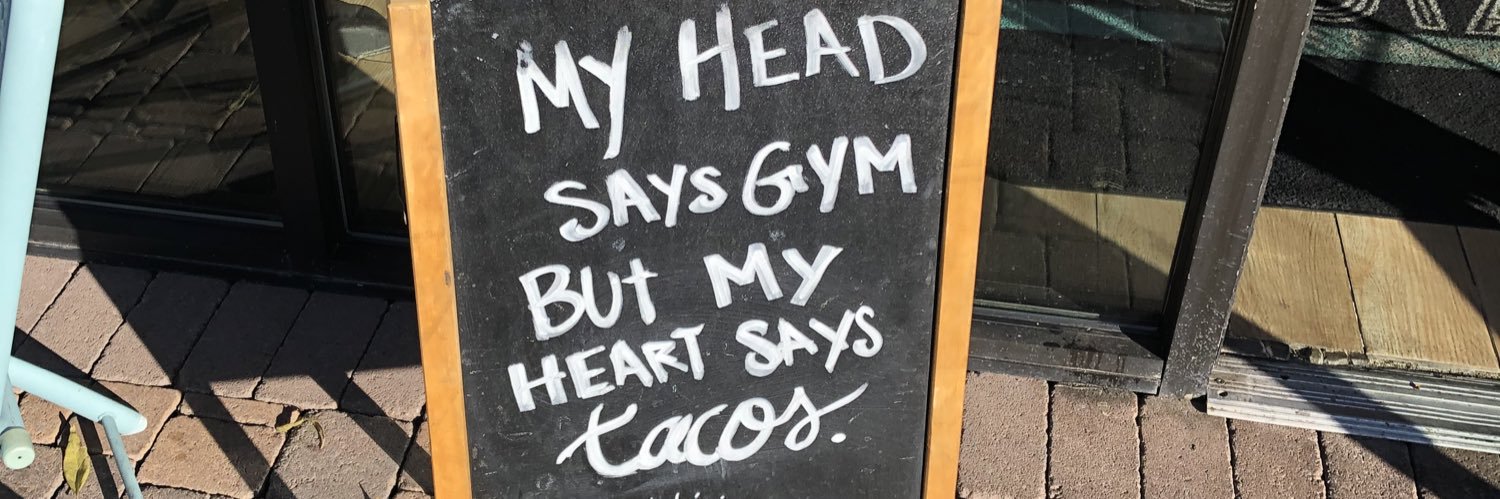 My HEAD
SAYS GYM
BUt My
HEART SAYS
tacos.